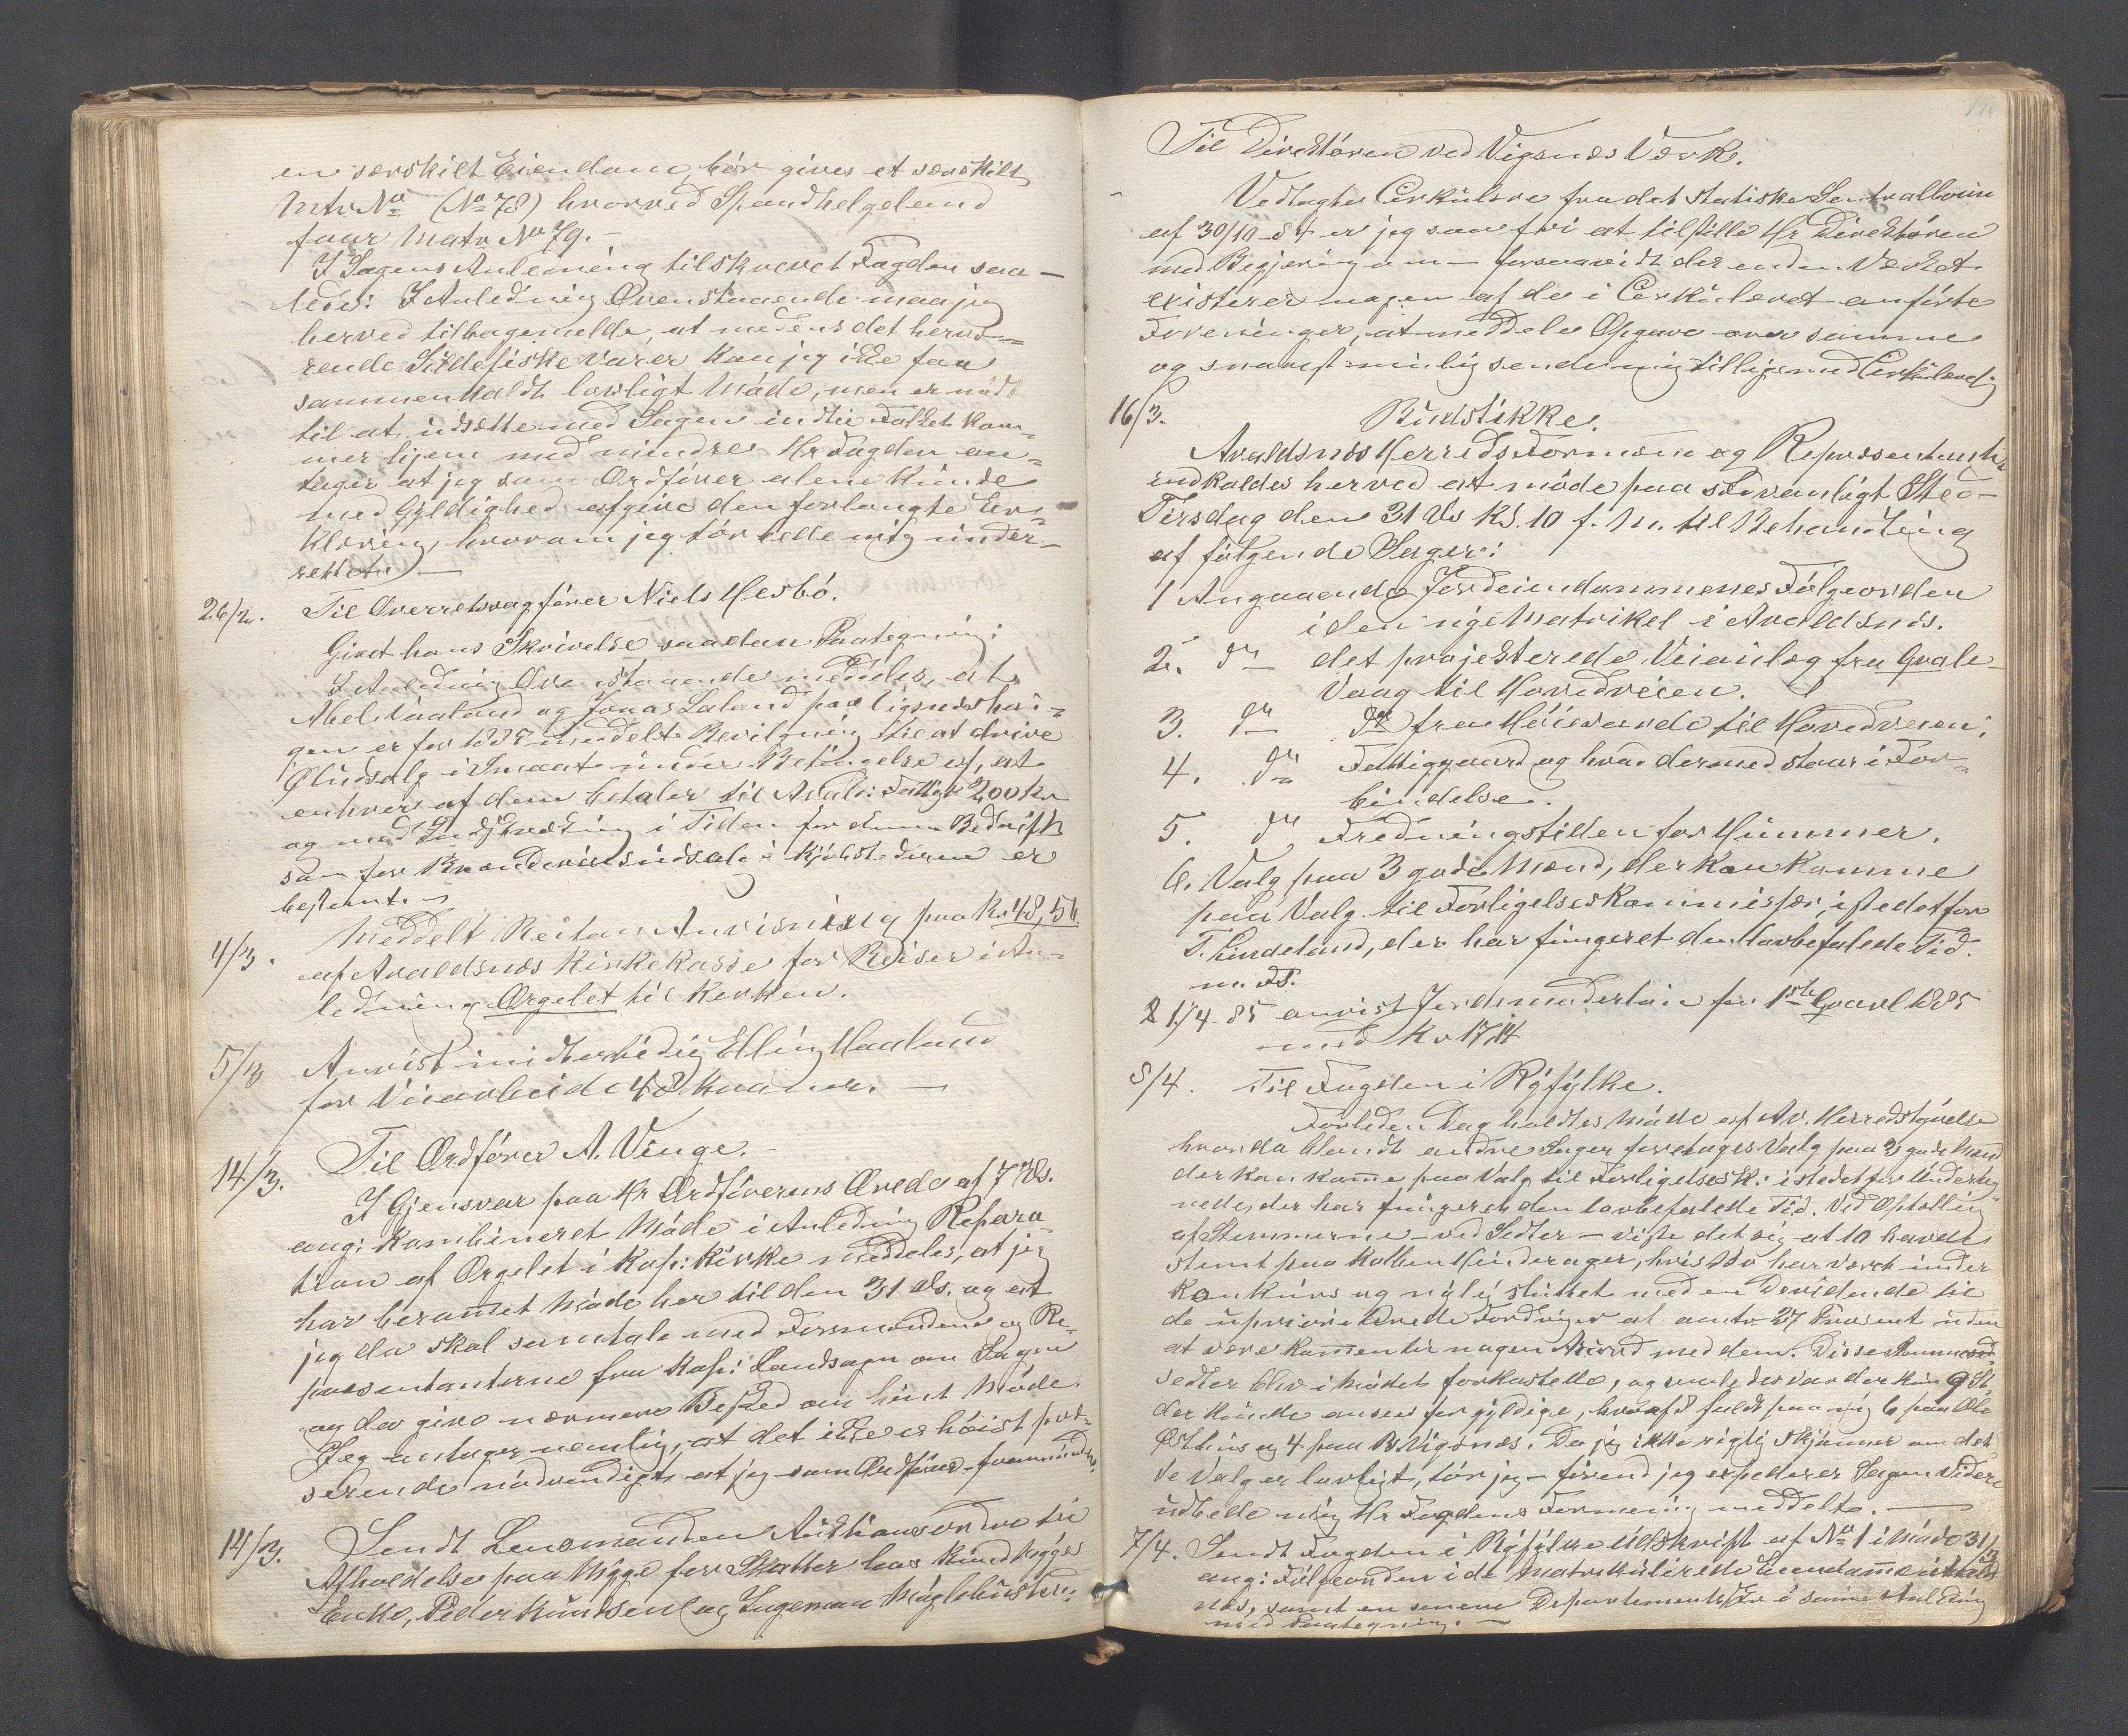 en særskilt Eiendom, bør gives et særskilt
Matr. No (No 78) hvorved Spandhelgeland
faar Matr No 79. –
I Sagens Anledning tilskrevet Fogden saa-
ledes: I Anledning Ovenstaaende maa jeg
herved tilbagemelde, at medens det herva-
rende Sildefiske varer kan jeg ikke faa
sammenkaldt lovligt Møde, men er nødt
til at udsætte med Sagen indtil Folket kom-
mer hjem med mindre Hr Fogden an-
tager at jeg som Ordfører alene kunde
med Gyldighed afgive den forlangte Er-
klæring, hvorom jeg tør bede mig under-
rettet. –
26/2. Til Overretssagfører Niels Hesbö.
Givet hans Skrivelse saadan Paategning:
I Anledning Ovenstaaende meddeles, at
Abel Vaaland og Jonas Laland paa Vigsnæs havi-
gen er for 1885 meddelt Bevilgning til at drive
Öludsalg i Smaat under Betingelse af, at
enhver af dem betaler til Avalds: Fattigk 200 Kr
og med Indskrænkning i Tiden for denne Bedrift
som for Brændevinsudsalg i Kjøbstæderne er
bestemt. –
4/3. Meddelt Reitan Anvisning paa Kr 48,56
af Avaldsnæs Kirkekasse for Reiser i An-
ledning Orgelet til Kirken.
5/3 Anvist midlertidig Elling Haaland
for Veiarbeide 48 Kroner. –
14/3. Til Ordfører A. Vinge. –
I Gjensvar paa Hr Ordførerens Ærede af 7 ds.
ang: kombineret Møde i Anledning Repara-
tion af Orgelet i Kop: Kirke meddeles, at jeg
har berammet Møde her til den 31 ds. og at
jeg da skal samtale med Formændene og Re-
præsentanterne fra Kop: Landsogn om Sagen
og da give nærmere Besked om hint Møde.
Jeg antager nemlig, at det ikke er høist pres-
serende nødvendigt at jeg som Ordfører
14/3. Sendt Lensmanden Auktionsordre til
Afholdelse paa Mygge for Skatter hos Knud Mygges
Enke, Peder Knudsen og Ingeman Möglebustv:
Til Direktøren ved Vigsnæs Værk.
Vedlagte Cirkulære fra det statistiske Sentralbureau
af 30/10-84 er jeg saa fri at tilstille Hr Direktøren
med Begjæring om – forsaavidt der under Værket
existerer nogen af de i Cirkulæret anførte
Foreninger, at meddele Opgave over samme
og snarest mulig sende mig tilligemed Cirkulæret
16/3. Budstikke.
Avaldsnæs Herreds Formænd og Repræsentanter
indkaldes herved at møde paa sædvanligt Sted
Tirsdag den 31 ds Kl. 10 f. M. til Behandling
af følgende Sager:
1 Angaaende Jordeiendommenes Følgeorden
i den nye Matrikel i Avaldsnæs.
2. do det projekterede Veianlæg fra Qvale-
Vaag til Hovedveien.
3. do do fra Höievarde til Hovedveien.
4. do Fattiggaard og hvad dermed staar i For-
bindelse.
5. do Fredningstiden for Hummer.
6. Valg paa 3 gode Mænd, der kan komme
paa Valg til Forligelseskommissær, istedetfor
T. Lindeland, der har fungeret den lovbefalede Tid.
m. F.
2 1/4-85 anvist Jordemoderløn for 1ste Qvartl 1885
med Kr 17,14
5/4. Til Fogden i Ryfylke.
Forleden Dag holdtes Møde af Av. Herredstyrelse
hvor da blandt andre Sager foretoges Valg paa 3 gode Mænd
der kan komme paa Valg til Forligelsesk: istedetfor Underteg-
nede, der har fungeret den lovbefalede Tid. Ved Optælling
af Stemmerne – ved Sedler – viste det sig at 10 havde
stemt paa Kolben Hinderager, hvis Bo har været under
Konkurs og nylig sluttet med en Dividende til
de upriviterede Fordringer af omtr 27 Procent uden
at være kommen til nogen Akkord med dem. Disse Stemme-
sedler blev i Mødet forkastede, og saaledes var der kun 9 St,
der kunde ansees for gyldige, hvoraf 8 faldt paa mig 6 paa Ole
Østhus og 4 paa B. Vigsnæs. Da jeg ikke rigtig skjønner om det-
te Valg er lovligt, tør jeg – førend jeg expederer Sagen videre
udbede mig Hr Fogdens Formening meddelt. –
7/4. Sendt Fogden i Ryfylke Udskrift af No 1 i Møde 31/3
ang: Følgeorden i de matrikulerede Eiendomme i Avalds
næs, samt en senere Departements Skr i samme Anledning
med Paategning. –